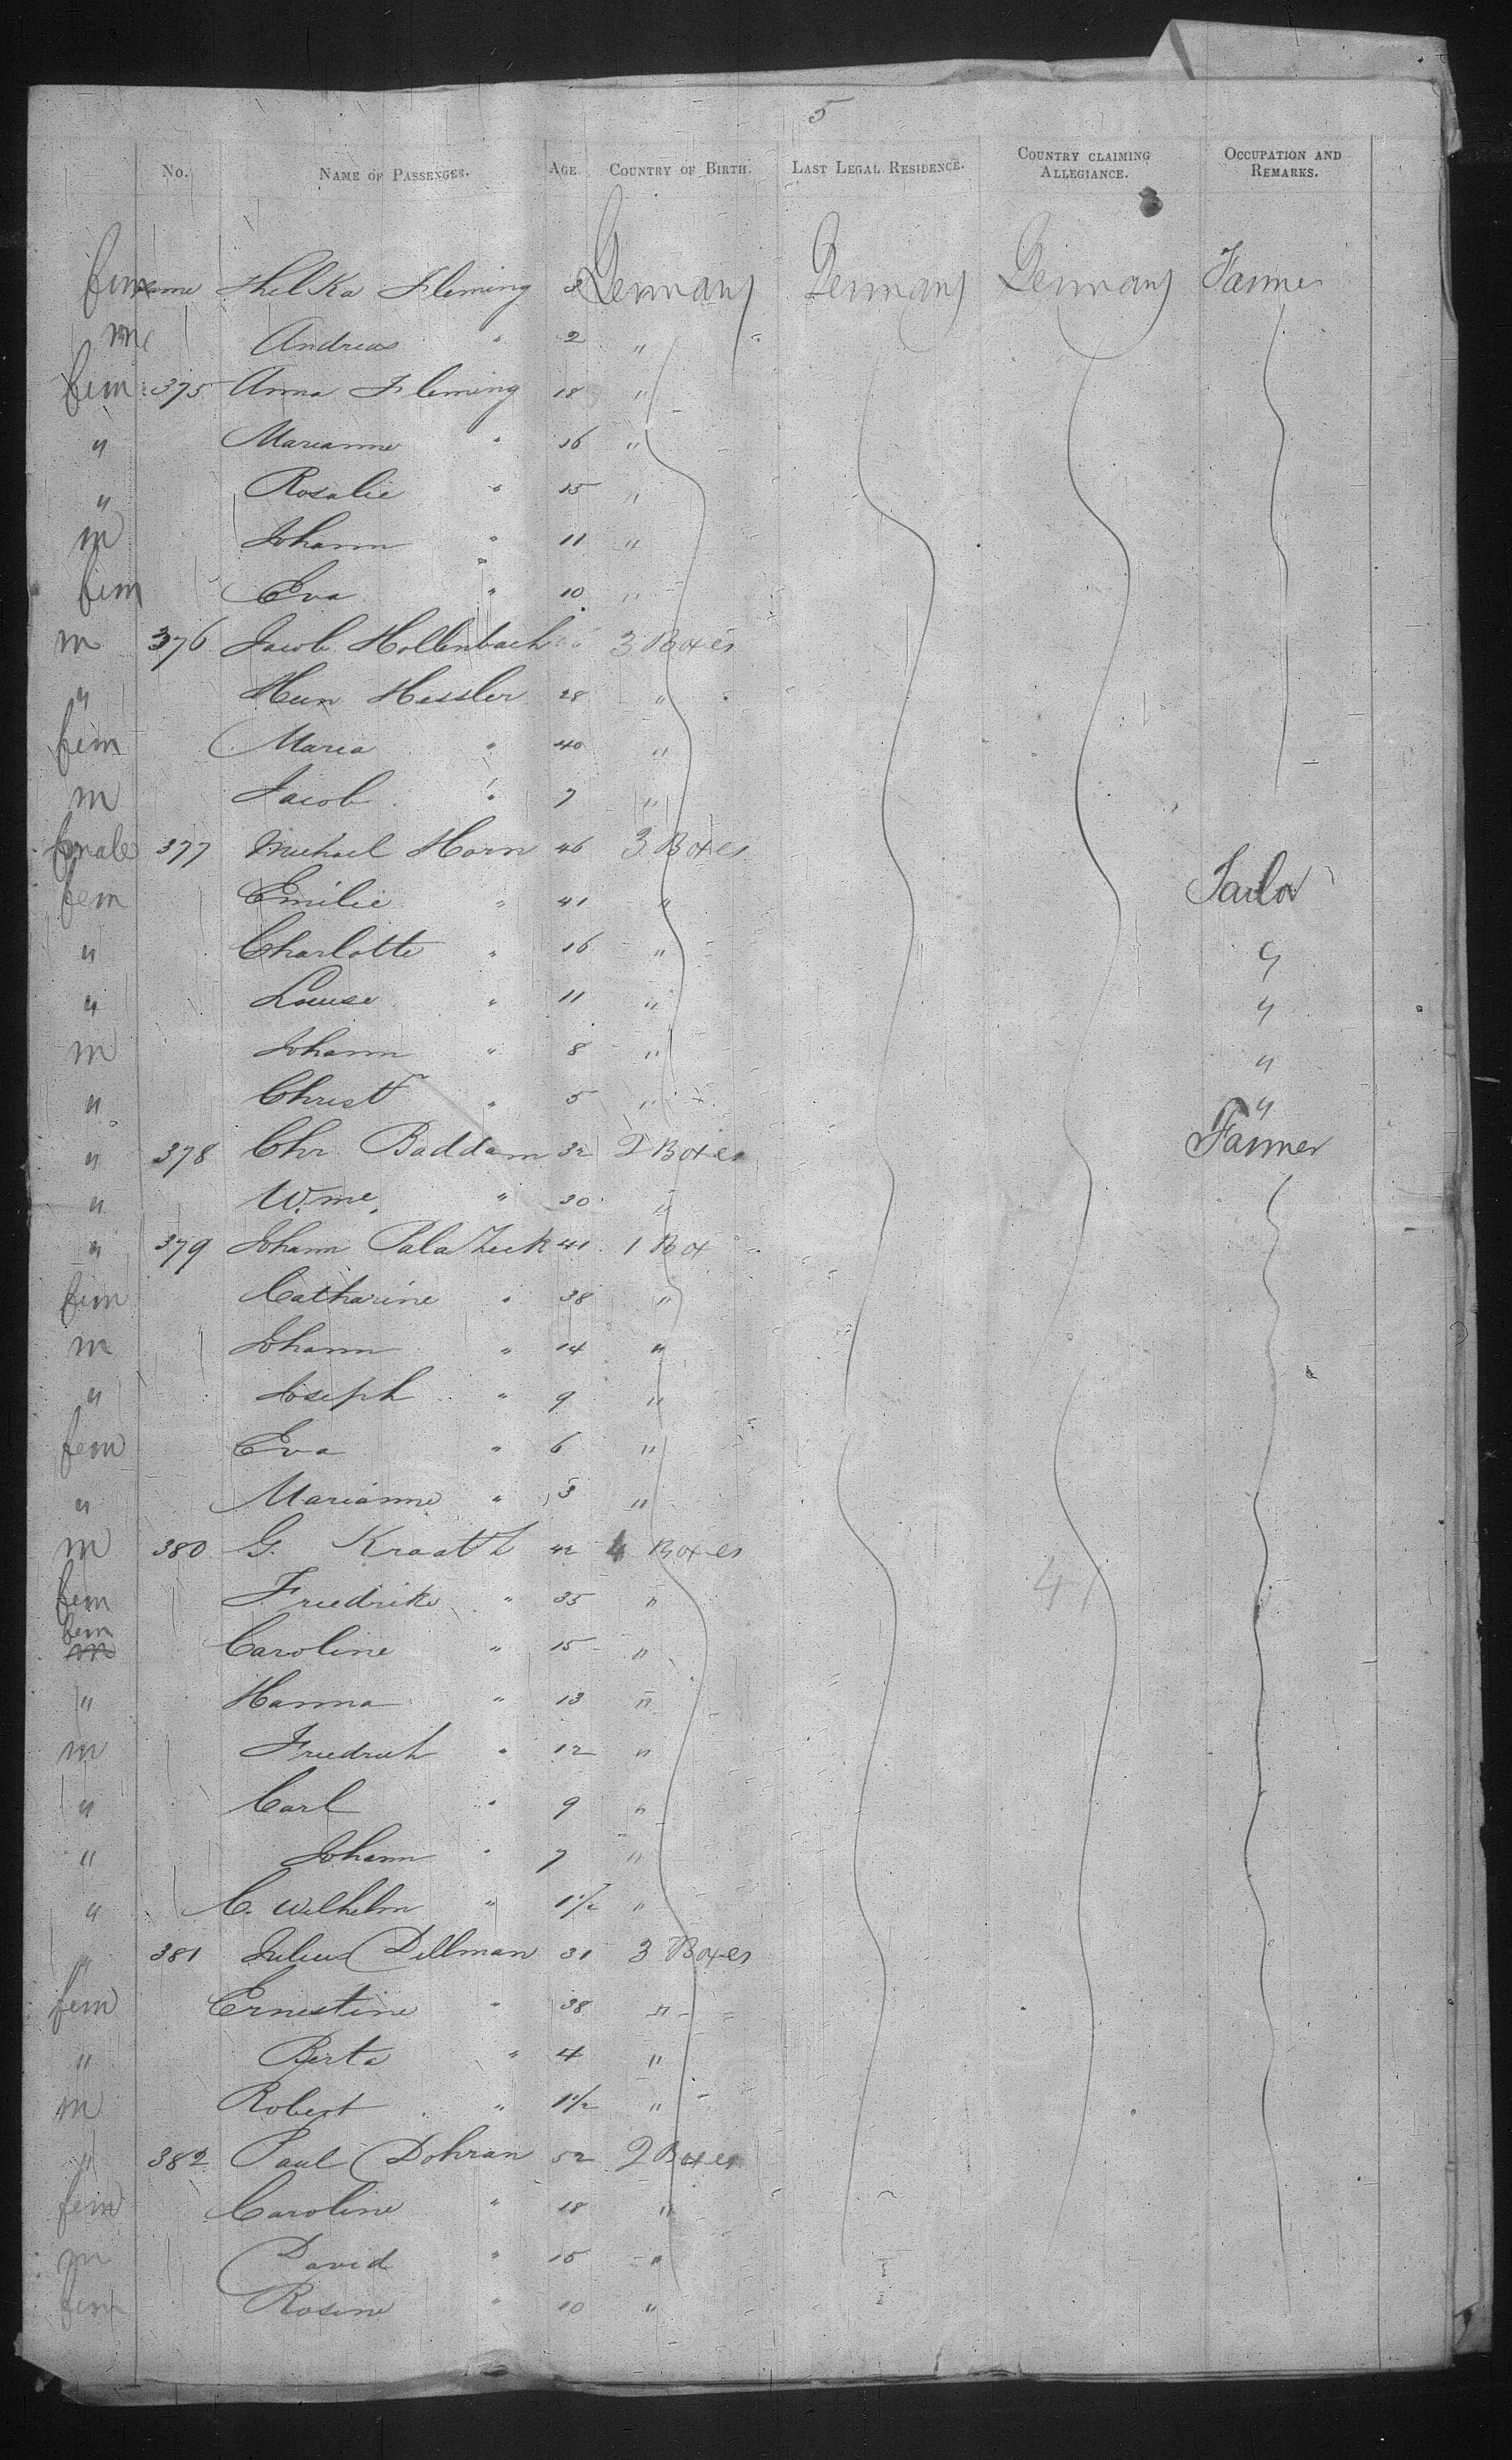 5
No. NAME OF PASSENGER. AGE. COUNTRY OF BIRTH. LAST LEGAL RESIDENCE. COUNTRY CLAIMING ALLEGIANCE. OCCUPATION AND REMARKS.
fem Thelka Fleming 3 Germany Germany Germany Farmer
m Andreas " 2 "
fem 375 Anna Fleming 18 "
" Marianne " 16 "
" Rosalie " 15 "
m Johann " 11 "
fem Eva " 10 "
m 376 Jacob Hollenbach 3 Boxes
" Hessler 28 "
fem Maria " 40 "
m Jacob " 7 "
377 Michael Horn 46 3 Boxes
fem Emilie " 41 " Tailor
" Charlotte " 16 " "
" Louise " 11 " "
m Johann " 8 " "
" Christ " 5 " "
" 378 Chr Baddam 32 2 Boxes Farmer
" Wme. " 30 "
" 379 Johann 41 1 Box
fem Catharine " 38 "
m Johann " 14 "
" Joseph " 9 "
fem Eva " 6 "
" Marianne " 3 "
m 380 G. Kraatz 42 4 Boxes
fem Friedrike " 35 " 41
fem Caroline " 15 "
" Hanna " 13 "
m Friedrich " 12 "
" Carl " 9 "
" Johann " 7 "
" C. Wilhelm " 1 1/2 "
" 381 Julius Dillman 31 3 Boxes
fem Ernestine " 38 "
" Berta " 4 "
m Robert " 1 1/2 "
" 382 Paul Dohran 52 2 Boxes
fem Caroline " 18 "
m David " 15 "
fem Rosine " 10 "